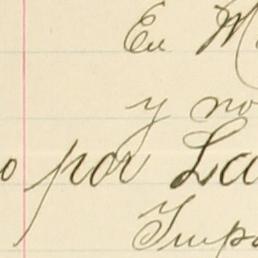 En M
y no
o por La
Imp